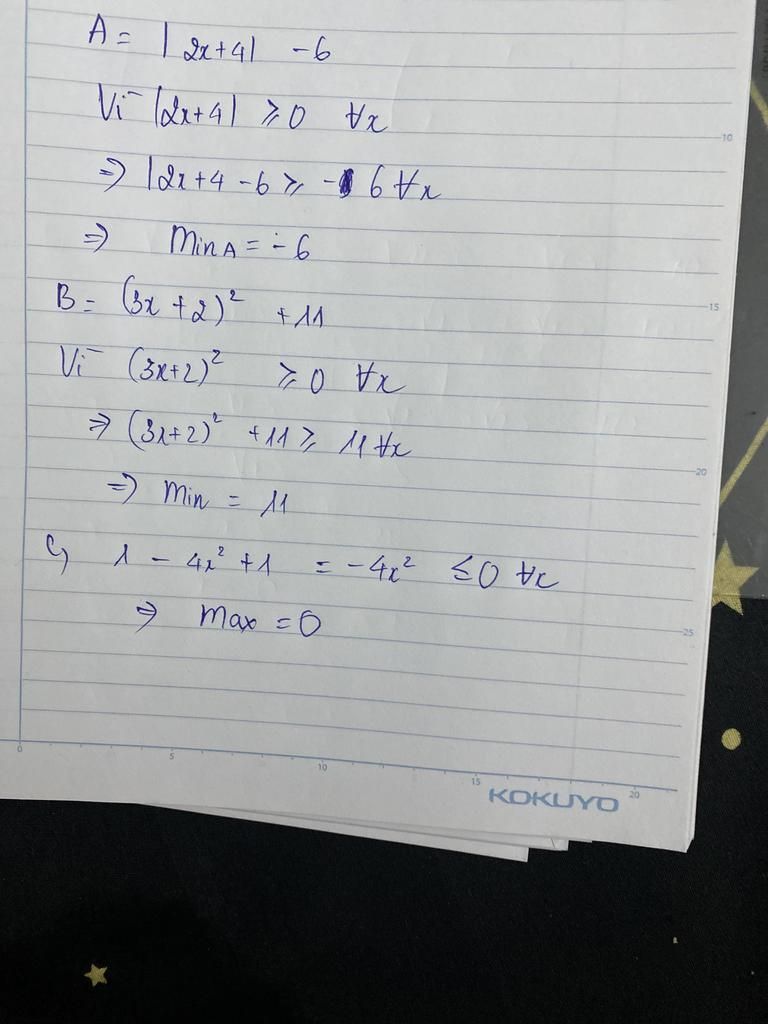 A = |2x+4| -6
Vì |2x+4| ⩾ 0 ∀x
⇒ |2x+4 -6 ⩾ -6 ∀x
⇒ Min A = -6
B = (3x+2)² +11
Vì (3x+2)² ⩾ 0 ∀x
⇒ (3x+2)² +11 ⩾ 11 ∀x
⇒ Min = 11
C, 1 - 4x² +1 = -4x² ≤ 0 ∀x
⇒ Max = 0
10
15
20
25
0 5 10 15 20
KOKUYO